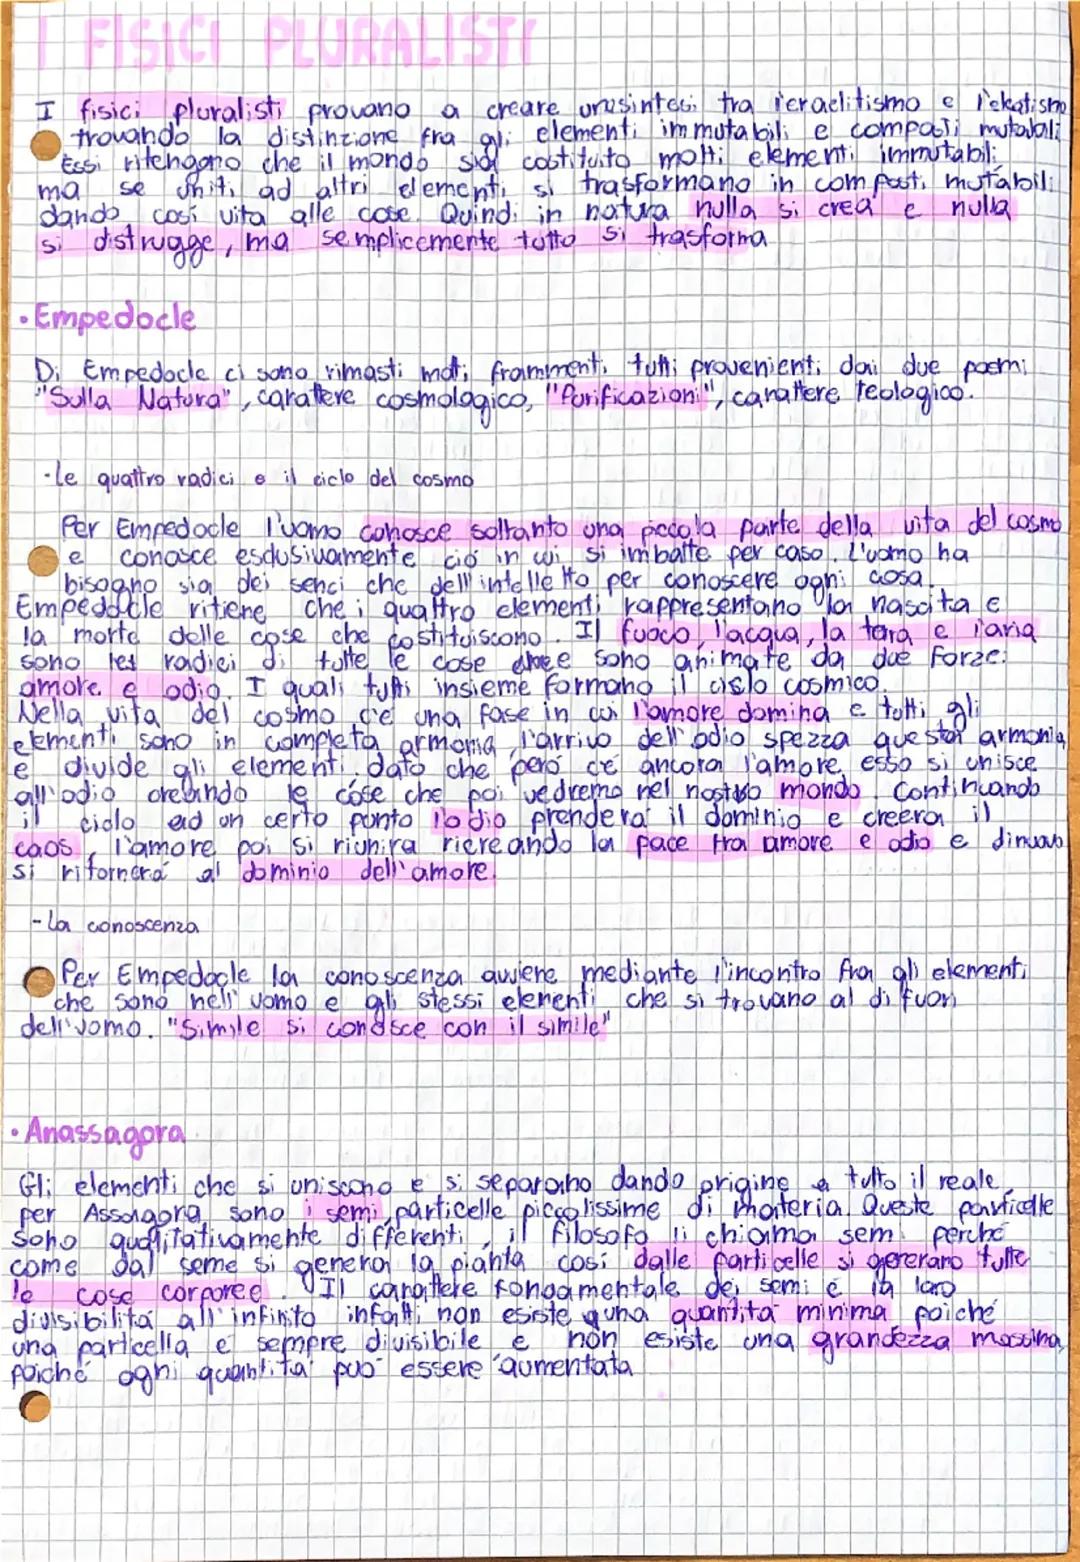 I FISICI PLURALISTI
I fisici pluralisti provano a creare una sintesi tra l'eraclitismo e l'eleatismo
trovando la distinzione fra gli elementi immutabili e composti mutabili
Essi ritengono che il mondo sia costituito molti elementi immutabili
ma se uniti ad altri elementi si trasformano in composti mutabili
dando così vita alle cose. Quindi in natura nulla si crea e nulla
si distrugge, ma semplicemente tutto si trasforma
• Empedocle
Di Empedocle ci sono rimasti molti frammenti tutti provenienti dai due poemi
"Sulla Natura", carattere cosmologico, "Purificazioni", carattere teologico.
-le quattro radici e il ciclo del cosmo
Per Empedocle l'uomo conosce soltanto una piccola parte della vita del cosmo
e conosce esclusivamente ciò in cui si imbatte per caso. L'uomo ha
bisogno sia dei senci che dell'intelletto per conoscere ogni cosa.
Empedocle ritiene che i quattro elementi rappresentano la nascita e
la morte delle cose che costituiscono. Il fuoco, l'acqua, la terra e l'aria
sono radici di tutte le cose sono animate da due forze:
amore e odio. I quali tutti insieme formano il ciclo cosmico.
Nella vita del cosmo c'è una fase in cui l'amore domina e tutti gli
elementi sono in completa armonia, l'arrivo dell'odio spezza questa armonia
e divide gli elementi, dato che però c'è ancora l'amore esso si unisce
all'odio creando le cose che poi vedremo nel nostro mondo. Continuando
il ciclo ad un certo punto l'odio prenderà il dominio e creerà il
caos, l'amore poi si riunirà ricreando la pace tra amore e odio e dinuovo
si ritornerà al dominio dell'amore.
-La conoscenza
Per Empedocle la conoscenza avviene mediante l'incontro fra gli elementi
che sono nell'uomo e gli stessi elementi che si trovano al di fuori
dell'uomo. "Simile si conosce con il simile"
• Anassagora
Gli elementi che si uniscono e si separano dando origine a tutto il reale
per Assagora sono i semi, particelle piccolissime di materia. Queste particelle
sono qualitativamente differenti, il filosofo li chiama semi perché
come dal seme si genera la pianta così dalle particelle si generano tutte
le cose corporee. Il carattere fondamentale dei semi è la loro
divisibilità all'infinito infatti non esiste una quantità minima poiché
una particella è sempre divisibile e non esiste una grandezza massima,
poiché ogni quantità può essere aumentata